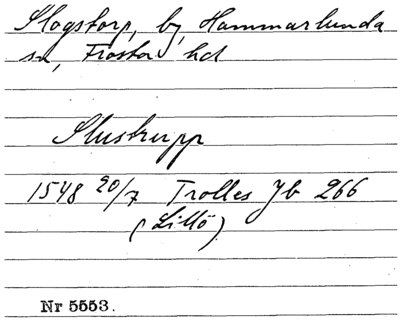 Slogstorp, by, Hammarlunda
sn, Frosta hd
Slustrupp
1548 20/7 Trolles Jb 266
(Lillö)
Nr 5553.